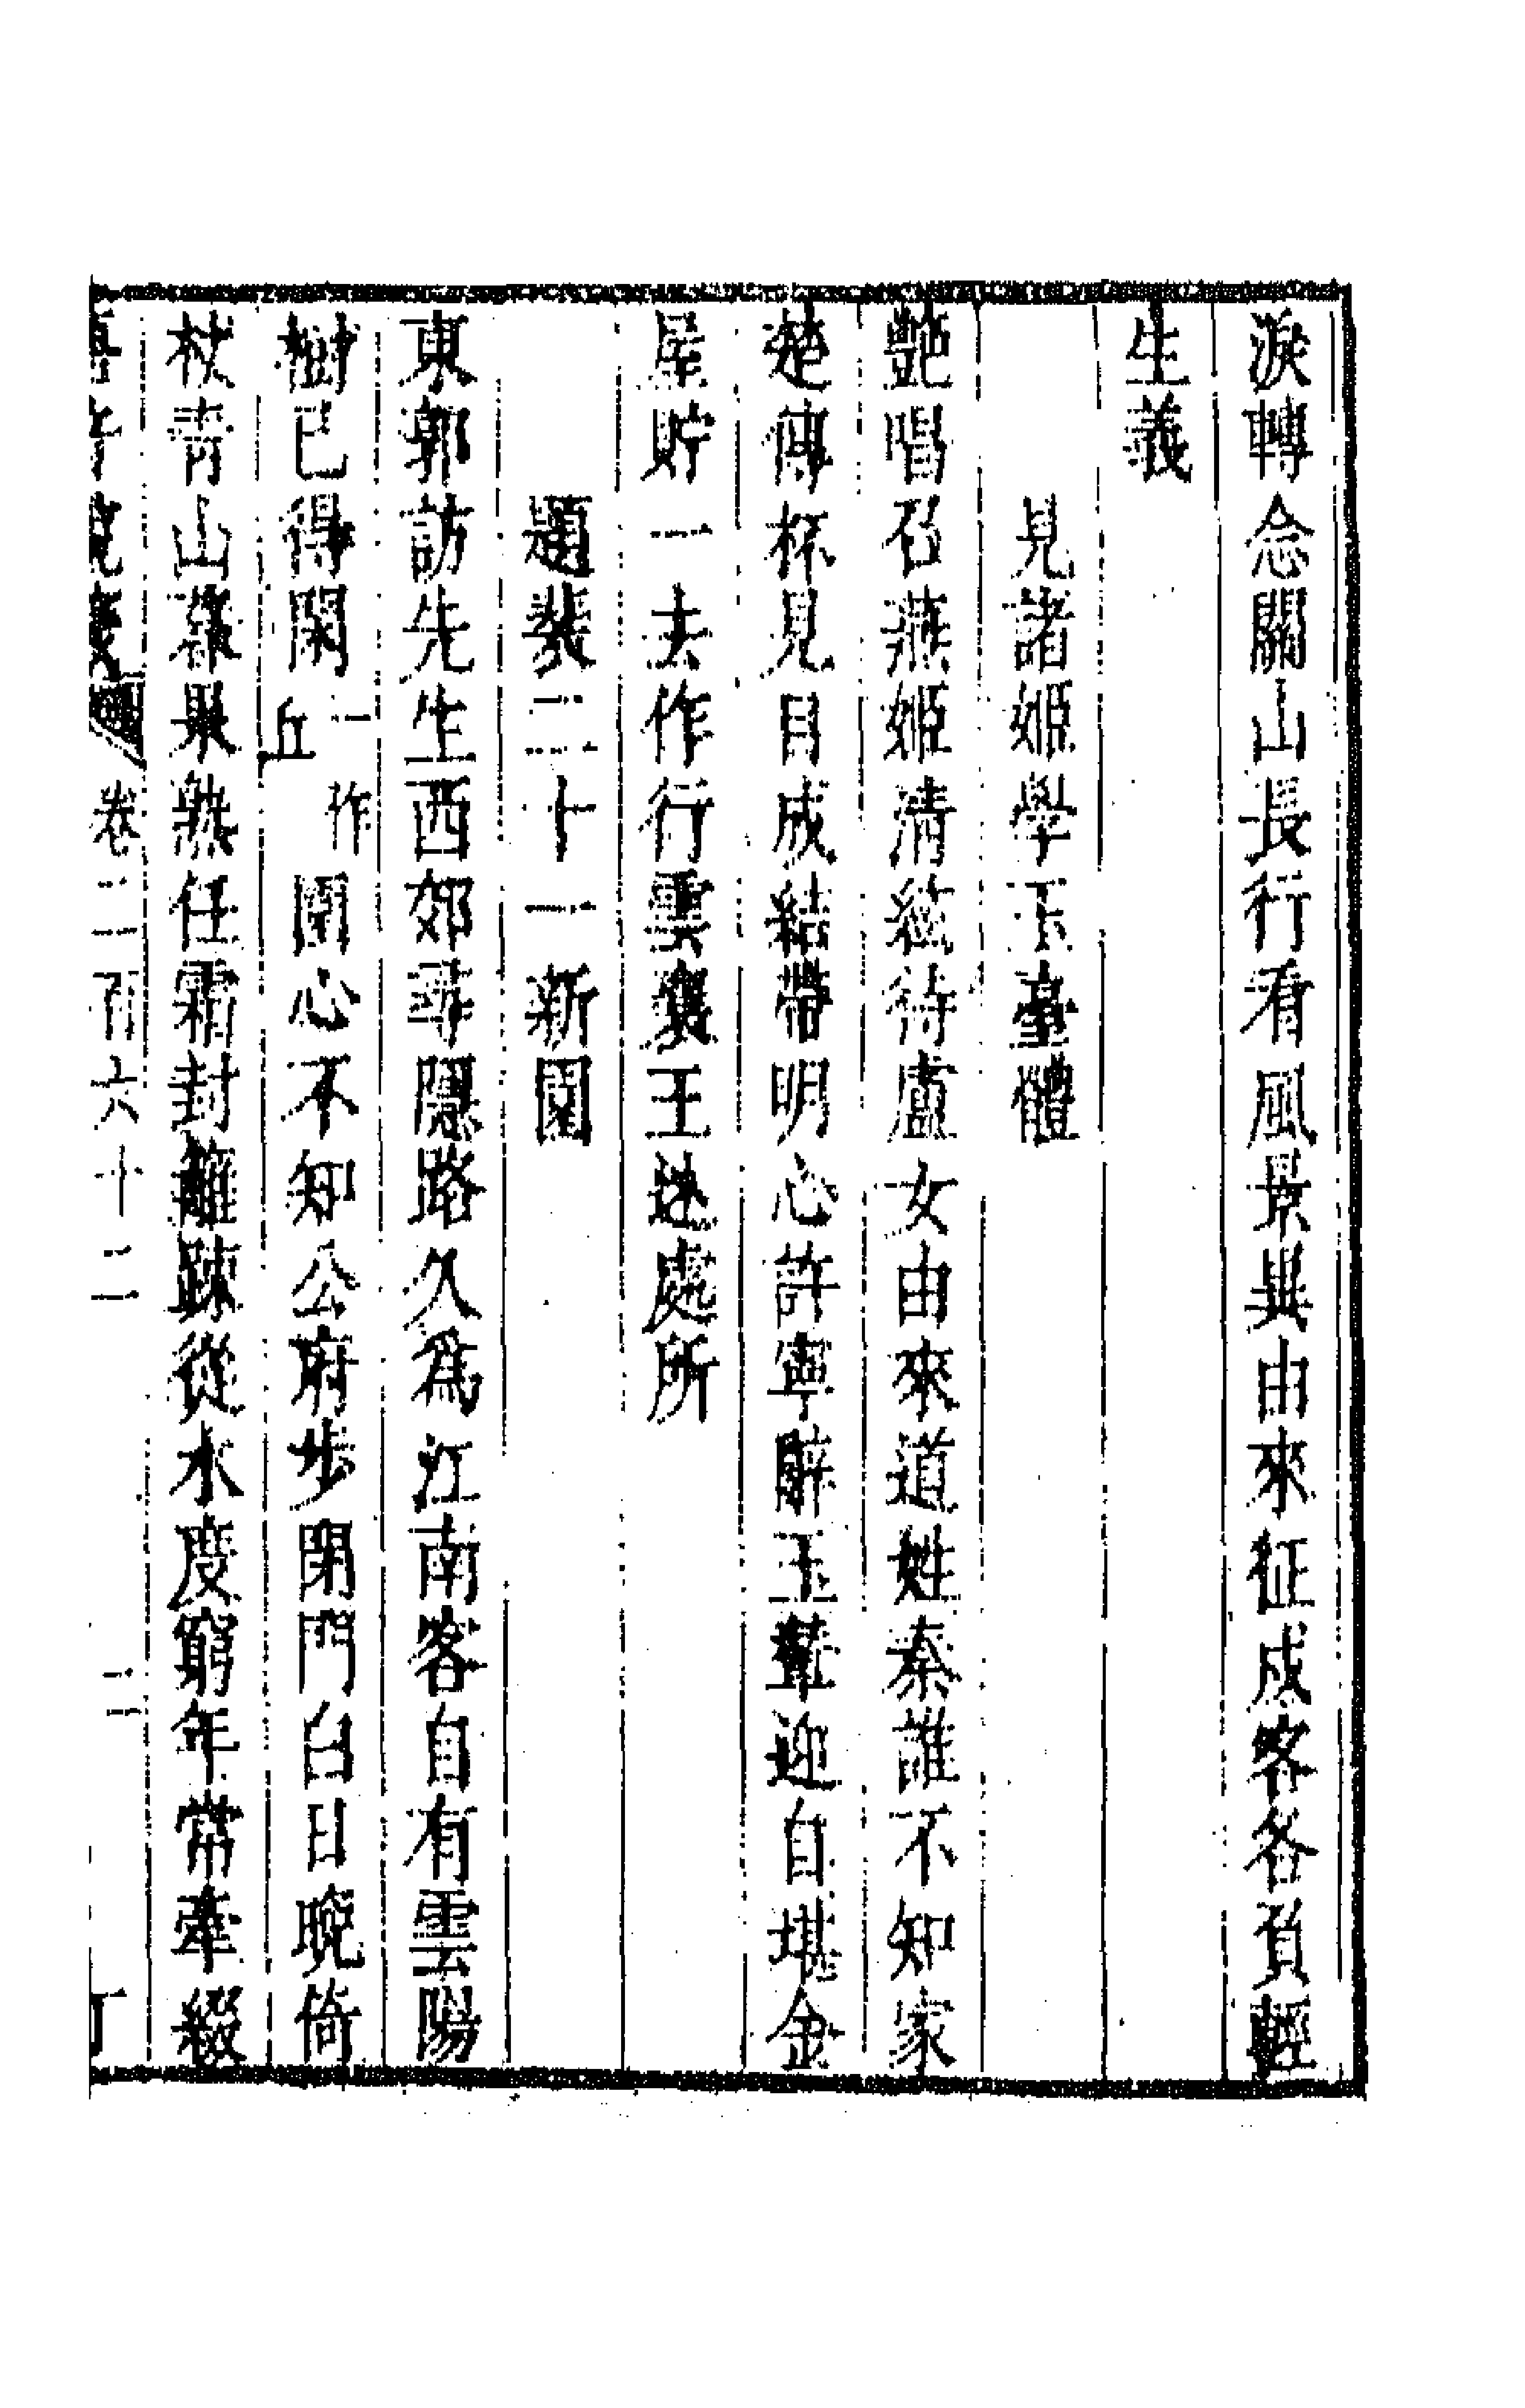 淚轉念關山長行看風景異由來征戍客各負輕
生義
見諸姬學玉臺體
艷唱召燕姬清絃待盧女由來道姓秦誰不知家
楚傳杯見目成結帶明心許寧辭玉輦迎自堪金
屋貯一去作行雲襄王迷處所
題裴二十一新園
東郭訪先生西郊尋隱路久為江南客自有雲陽
樹已得閑一作丘園心不知公府步閉門白日晚倚
杖青山暮果熟任霜封籬疎從水度窮年常牽綴
卷二百六十二 二